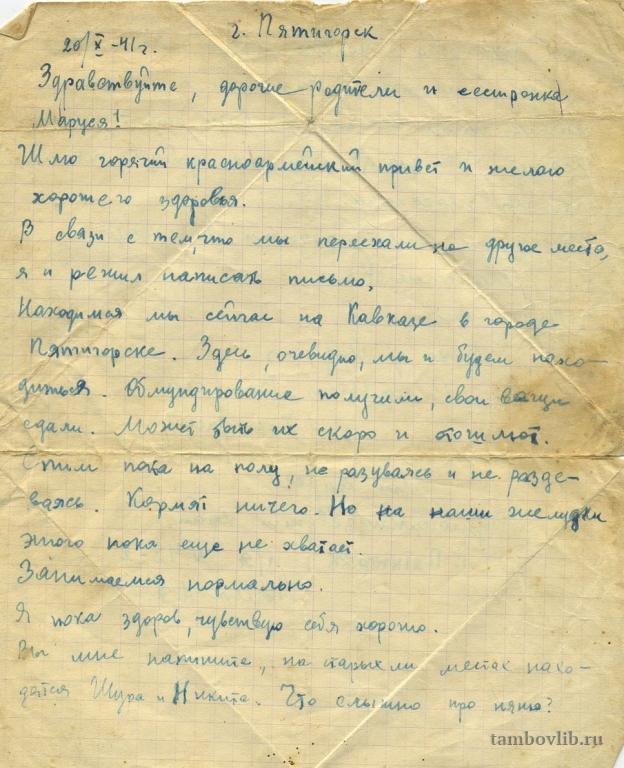 г. Пятигорск
20/X-41 г.
Здравствуйте, дорогие родители и сестронка
Маруся!
Шлю горячий красноармейский привет и желаю
хорошего здоровья.
В связи с тем, что мы переехали на другое место,
я и решил написать письмо.
Находимся мы сейчас на Кавказе в городе
Пятигорске. Здесь, очевидно, мы и будем нахо-
диться. Обмундирование получили, свои вещи
сдали. Может быть их скоро и пошлют.
Спим пока на полу, не разуваясь и не разде-
ваясь. Кормят ничего. Но на наши желудки
этого пока еще не хватает.
Занимаемся нормально.
Я пока здоров, чувствую себя хорошо.
Вы мне напишите, на старых ли местах нахо-
дятся Шура и Никита. Что слышно про няню?
tambovlib.ru